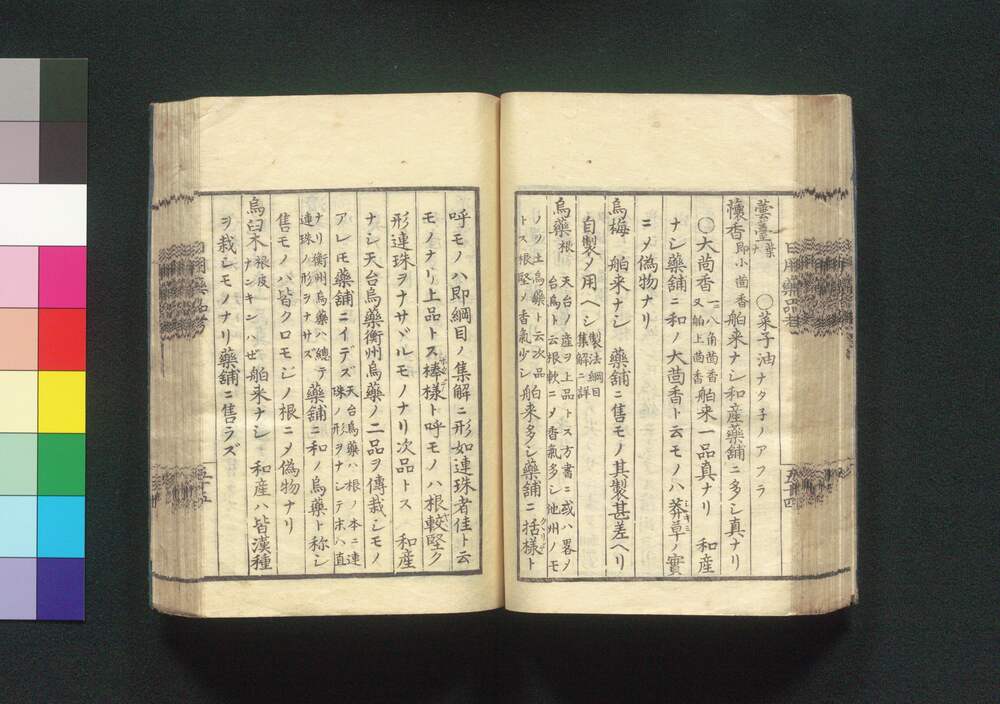 蕓薹 葉ナ 〇菜子油 ナタ子ノアフラ
懐香 即小茴香 舶来ナシ和産薬舗ニ多シ真ナリ
〇大茴香 一八角茴香 又舶上茴香 舶来一品真ナリ 和産
ナシ藥舗ニ和ノ大茴香ト云モノハ莽草ノ實
ニメ偽物ナリ
烏梅 舶来ナシ 藥舗ニ售モノ其製甚差ヘリ
自製メ用ヘシ 製法綱目集解ニ詳
烏藥 根 天台ノ産ヲ上品トス方書ニ或ハ畧メ
台烏ト云根軟ニメ香氣多シ池州ノモ
ノヲ土烏藥ト云次品
トス根堅メ香氣少シ 舶来多シ藥舗ニ括樣ト
呼モノハ即綱目ノ集解ニ形如連珠者佳ト云
モノナリ上品トス棒樣ト呼モノハ根較堅ク
形連珠ヲナサヾルモノナリ次品トス 和産
ナシ天台烏藥衡州烏藥ノ二品ヲ傳栽シモノ
アレ𪜈藥舗ニイデズ 天台烏藥ハ根ノ本ニ連
珠ノ形ヲナシテ末ハ直
ナリ衡州烏藥ハ總テ
連珠ノ形ヲナサズ 藥舗ニ和ノ烏藥ト称シ
售モノハ皆クロモジノ根ニメ偽物ナリ
烏臼木 根皮 ナンキンハゼ 舶来ナシ 和産ハ皆漢種
ヲ栽シモノナリ藥舗ニ售ラズ